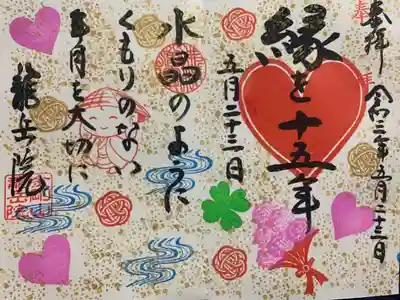 奉拝
令和三年五月二十三日
縁を十五年
五月二十三日
水晶のように
くもりのない
年月を大切に
龍岳院